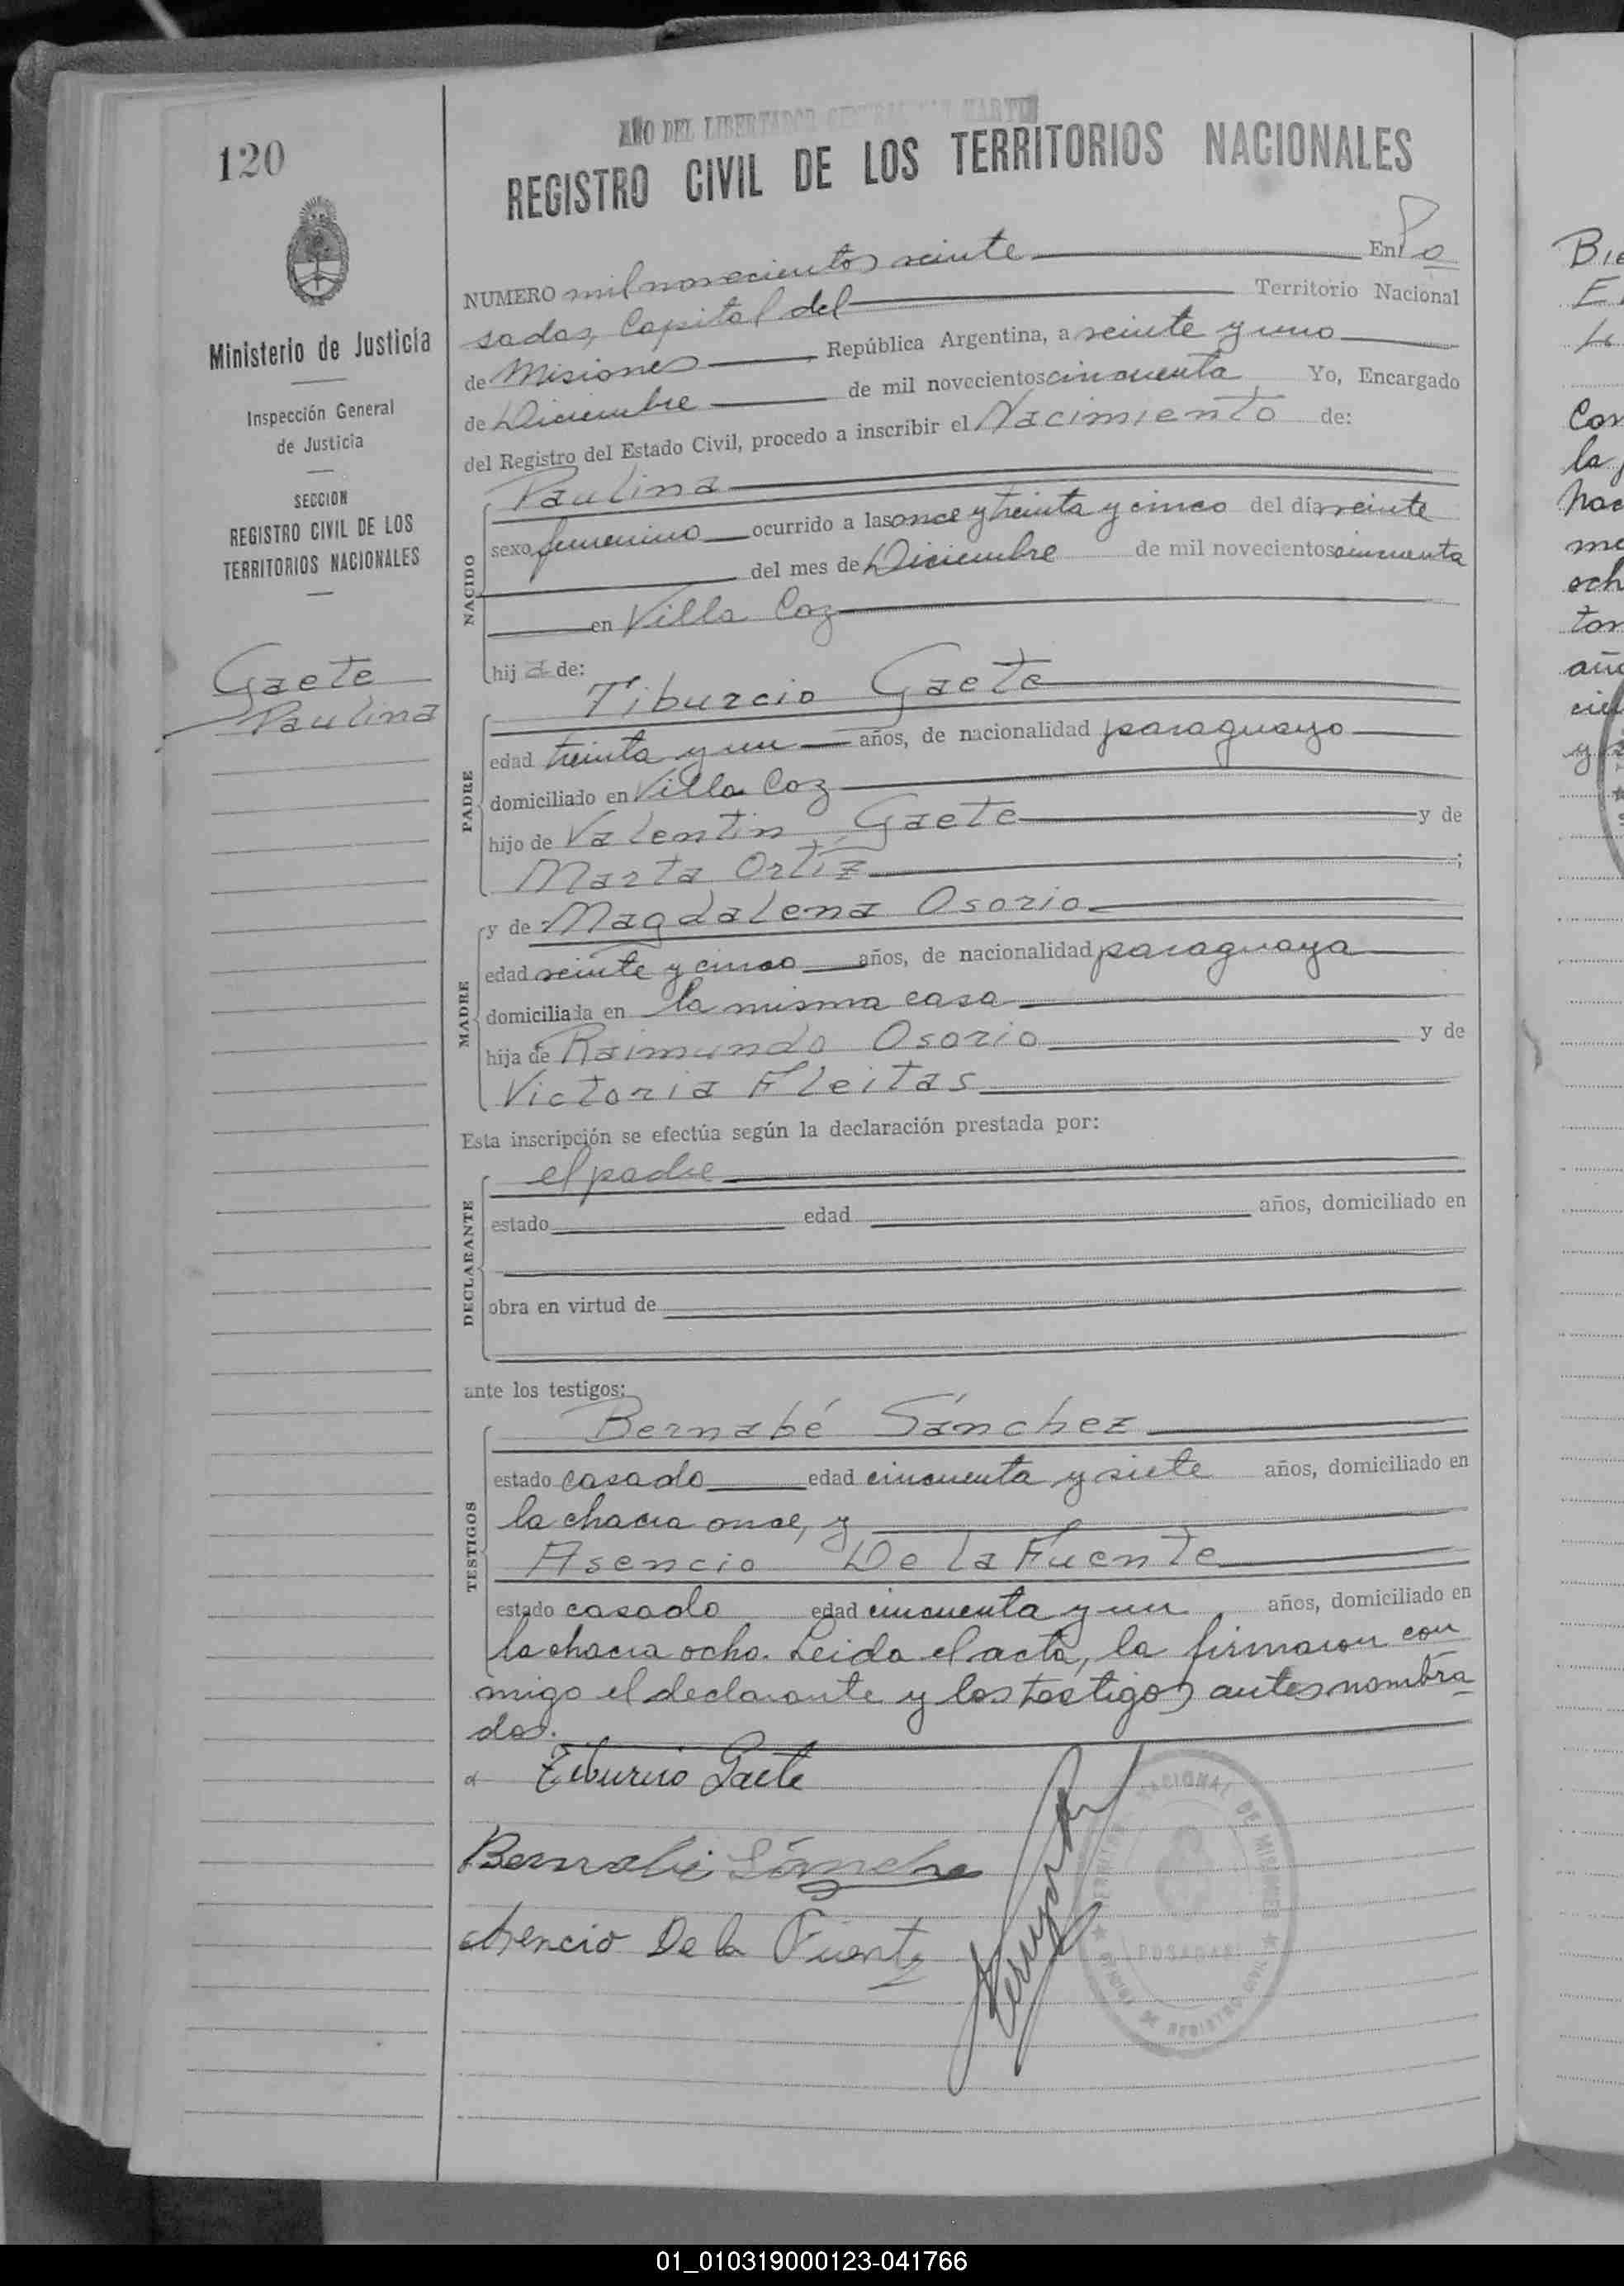 120
Ministerio de Justicia
Inspección General
de Justicia
SECCION
REGISTRO CIVIL DE LOS
TERRITORIOS NACIONALES
Gaete
Paulina
AÑO DEL LIBERTADOR GENERAL SAN MARTIN
REGISTRO CIVIL DE LOS TERRITORIOS NACIONALES
NUMERO mil novecientos veinte En Po
sadas, Capital del Territorio Nacional
de Misiones, República Argentina, a veinte y uno
de Diciembre de mil novecientos cincuenta, Yo, Encargado
del Registro del Estado Civil, procedo a inscribir el Nacimiento de:
NACIDO
Paulina
sexo femenino ocurrido a las once y treinta y cinco del día veinte
del mes de Diciembre de mil novecientos cincuenta
en Villa Coz
hij a de:
PADRE
Tiburcio Gaete
edad treinta y un años, de nacionalidad paraguayo
domiciliado en Villa Coz
hijo de Valentin Gaete y de
Marta Ortiz ;
MADRE
y de Magdalena Osorio
edad veinte y cinco años, de nacionalidad paraguaya
domiciliada en la misma casa
hija de Raimundo Osorio y de
Victoria Fleitas
Esta inscripción se efectúa según la declaración prestada por:
DECLARANTE
el padre
estado edad años, domiciliado en
obra en virtud de
ante los testigos:
TESTIGOS
Bernabé Sánchez
estado casado edad cincuenta y siete años, domiciliado en
la chacra once, y
Asencio De la Fuente
estado casado edad cincuenta y un años, domiciliado en
la chacra ocho. Leida el acta, la firmaron con
migo el declarante y los testigos antes nombra
dos.
Tiburcio Gaete
Bernabe Sánche
Asencio De la Fuente
TERRITORIO NACIONAL DE MISIONES
POSADAS
OFICINA DE REGISTRO CIVIL
Con
la
nac
me
och
tor
añ
y
01_010319000123-041766